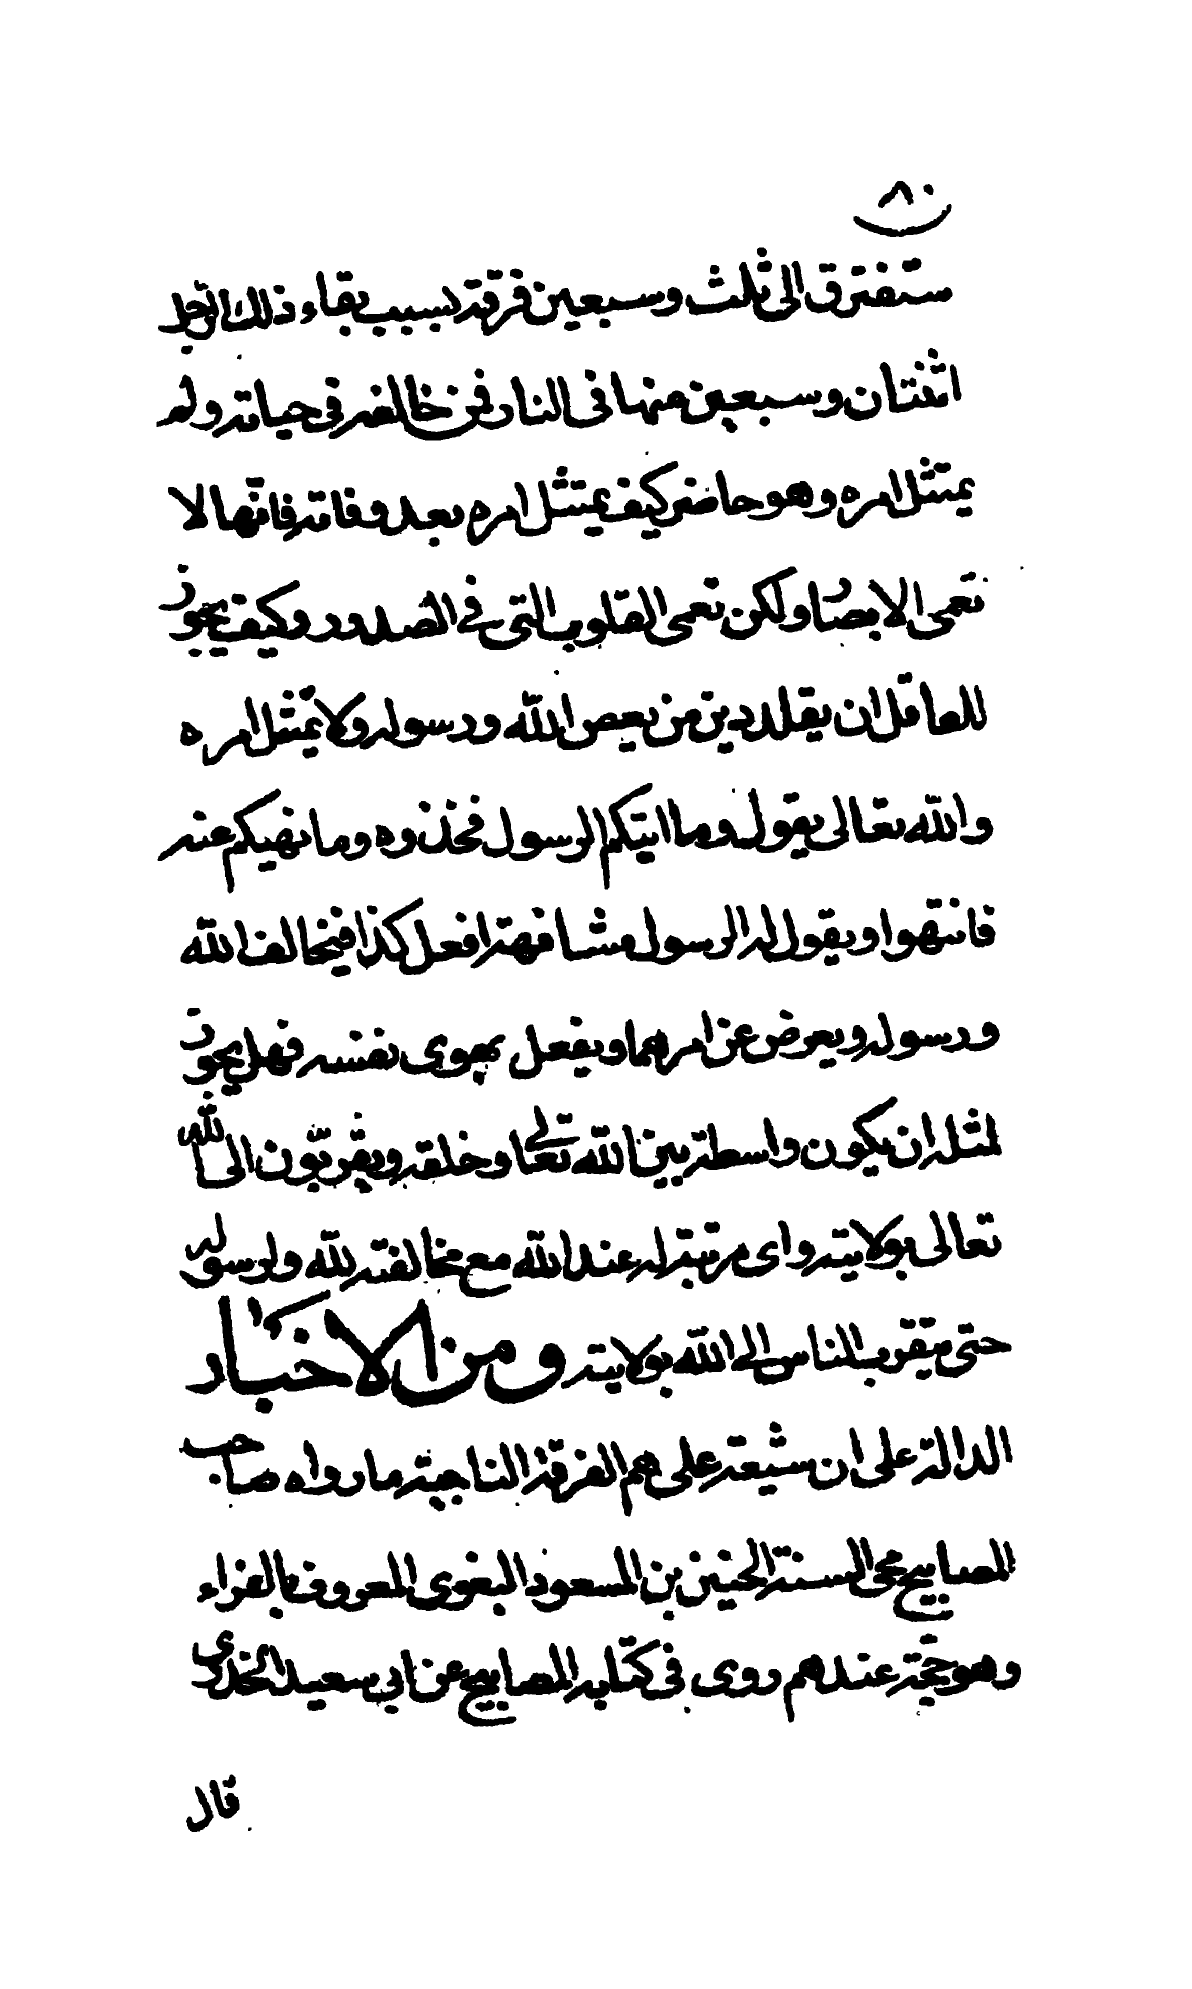 ٨٠
ستفترق الى ثلث وسبعين فرقة بسبب بقاء ذلك الرجل
اثنتان وسبعين منها فى النار فمن خالفه فى حياته ولم
يمتثل امره وهو حاضر كيف يمتثل امره بعد وفاته فانّها لا
تعمى الابصار ولكن تعمى القلوب التى فى الصدور وكيف يجوز
للعاقل ان يقلد دين من يعص اللّه ورسوله ولا يمتثل امره
واللّه تعالى يقول وما اتيكم الرسول فخذوه وما نهيكم عنه
فانتهوا ويقول له الرسول مشافهة افعل كذا فيخالف اللّه
ورسوله ويعرض عن امرهما ويفعل بهوى نفسه فهل يجوز
لمثله ان يكون واسطة بين اللّه تعالى وخلقه ويقربّون الى اللّه
تعالى بولايته واى مرتبة له عند اللّه مع مخالفته للّه ولرسوله
حتى يتقرب الناس الى اللّه بولايته ومن الاخبار
الدالة على ان شيعة على هم الفرقة الناجية ما رواه صاحب
المصابيح محى السنة الحسين بن المسعود البغوى المعروف بالفراء
وهو حجّة عندهم روى فى كتابه المصابيح عن ابى سعيد الخدرى
قال